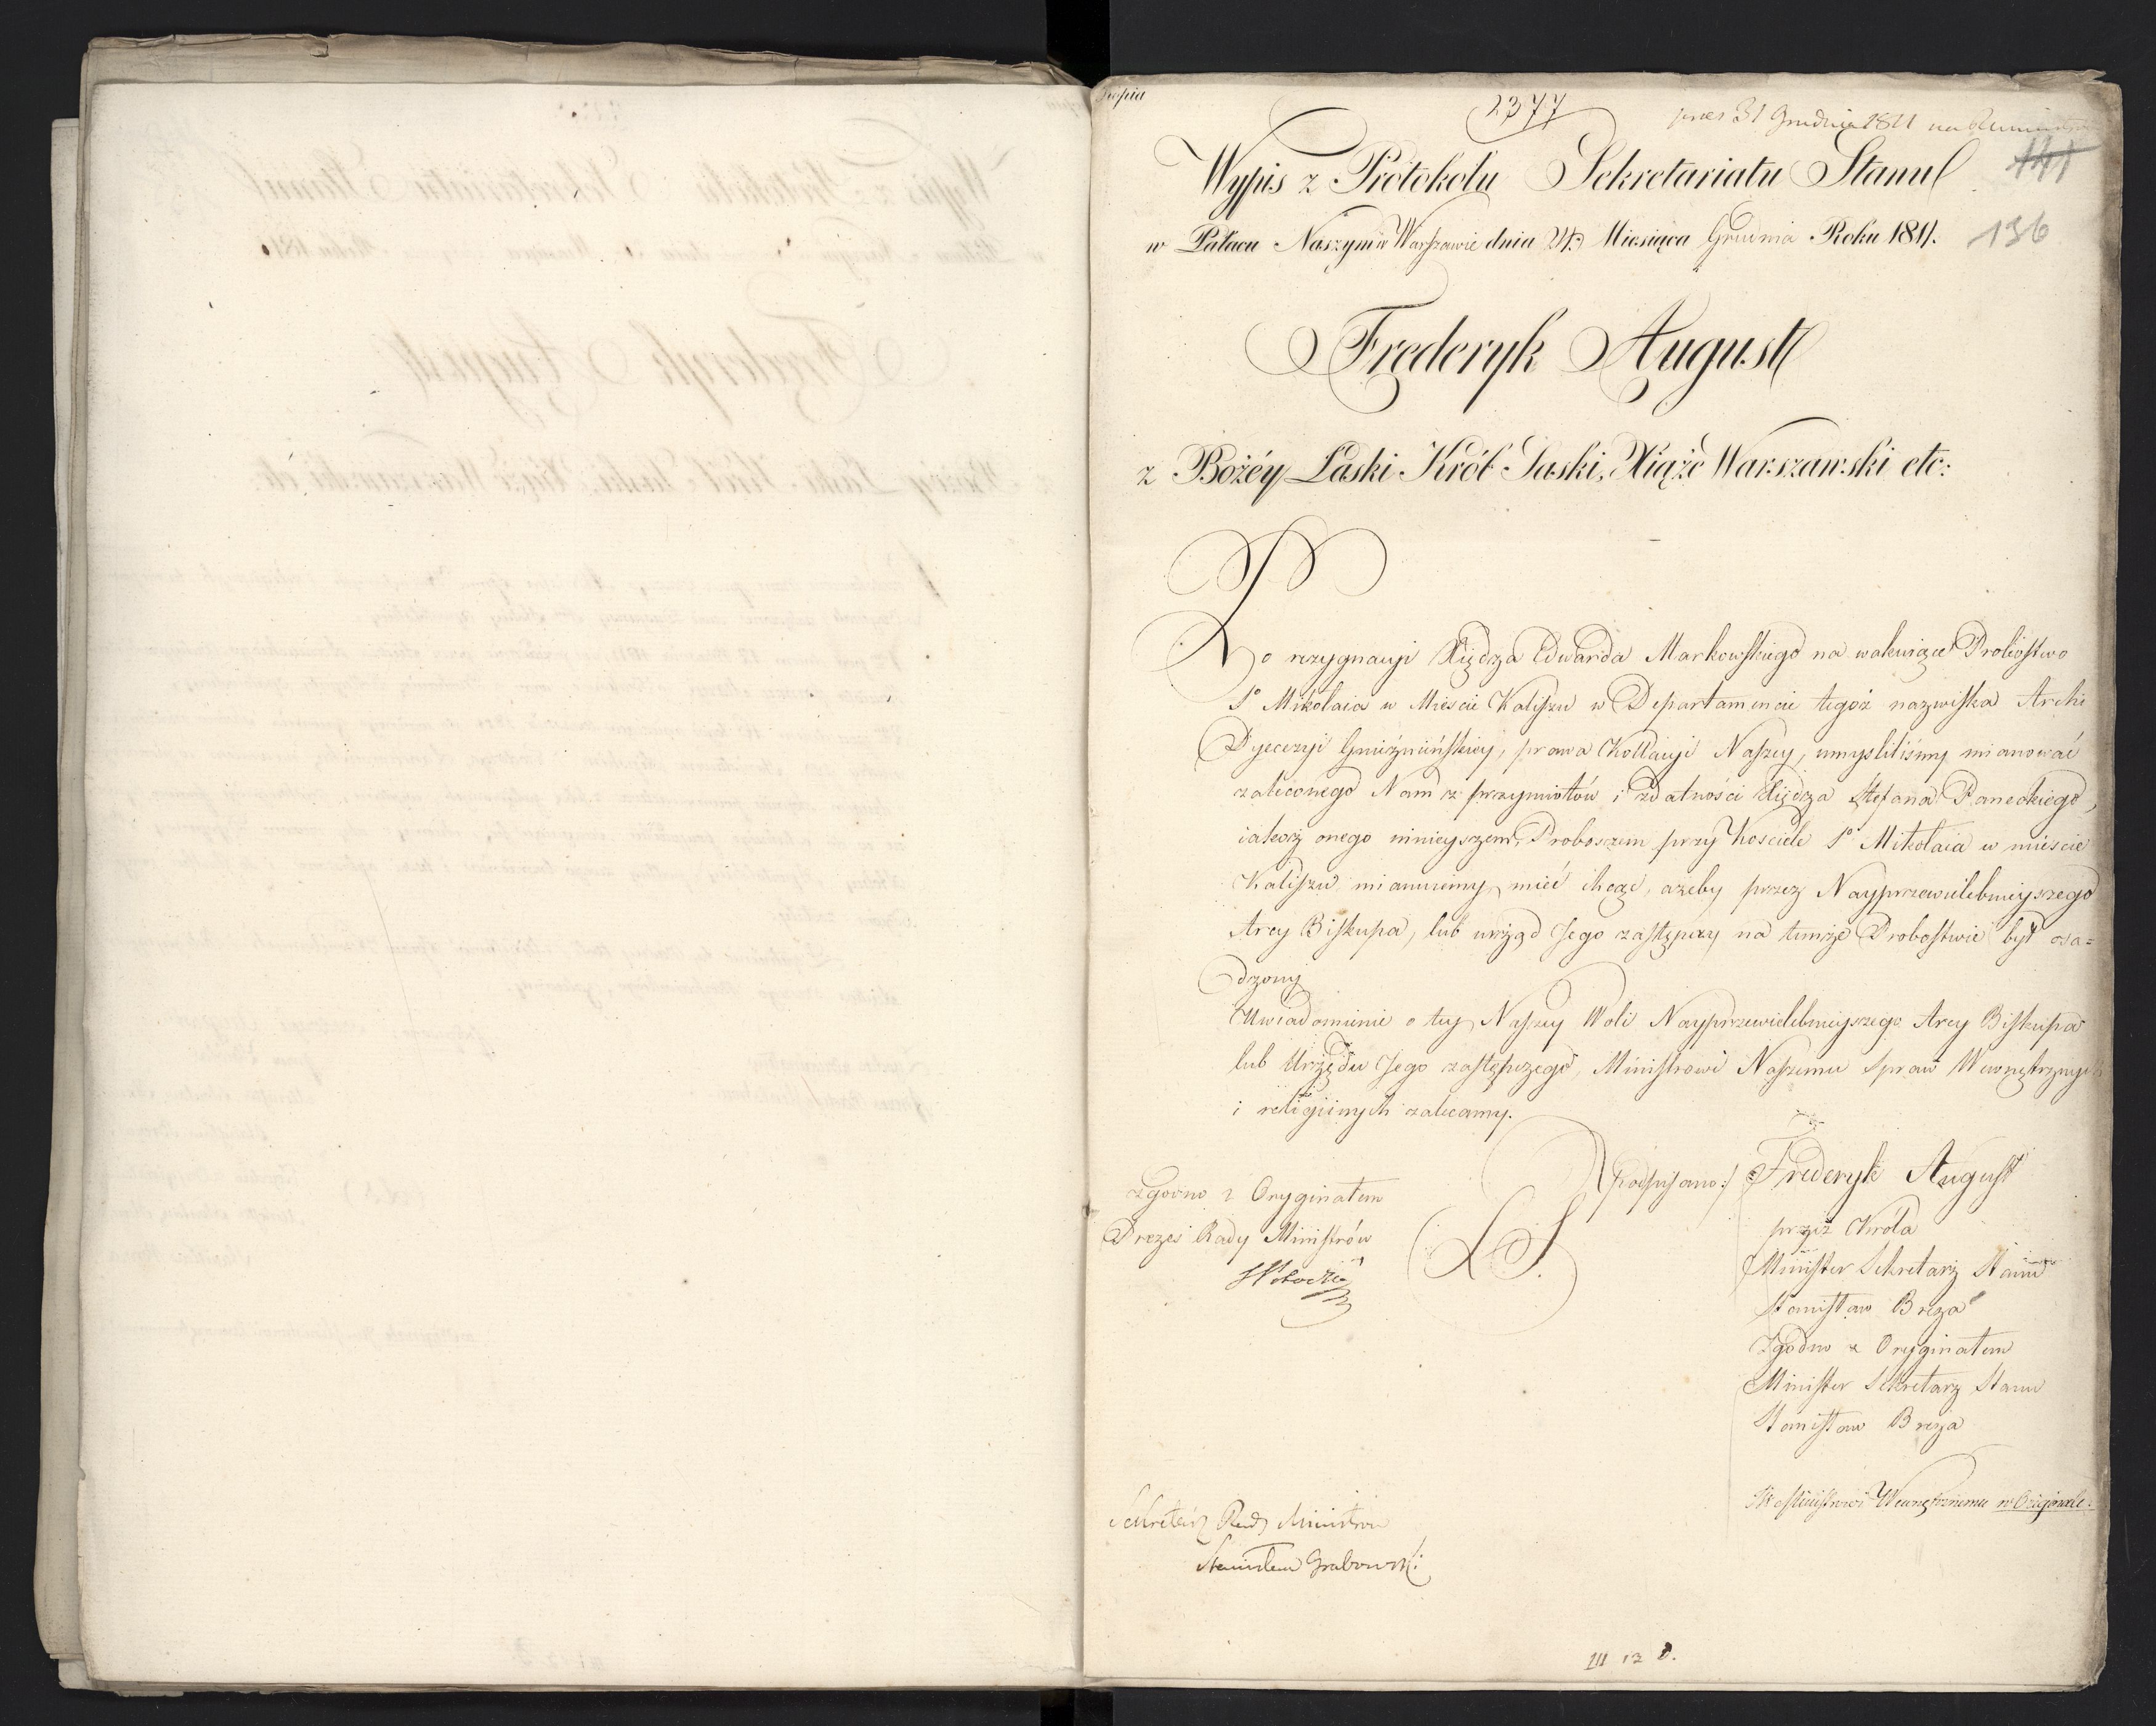 Kopia
2377
141
136
Wypis z Protokołu Sekretariatu Stanu
w Pałacu Naszym w Warszawie dnia 24. Miesiąca Grudnia Roku 1811.
Fryderyk August
z Bożéy Łaski Król Saski, Xiąże Warszawski etc:
Po rezygnacyi Xiędza Edwarda Markowskiego na wakuiące Probostwo
So Mikołaia w Mieście Kaliszu w Departamencie tegoż nazwiska Archi
Dyecezyi Gnieźnieńskiey, prawa Kollacyi Naszey, umyśliliśmy mianować
zaleconego Nam z przymiotów i zdatności Xiędza Stefana Paneckiego,
iakoż onego ninieyszem Proboszem przy Kościele So Mikołaia w mieście
Kaliszu mianuiemy, mieć chcąc, ażeby przez Nayprzewielebnieyszego
Arcy Biskupa, lub urząd Jego zastępczy na temże Probostwie był osa=
dzony
Uwiadomienie o tey Naszey Woli Nayprzewielebnieyszego Arcy Biskupa
lub Urzędu Jego zastępczego, Ministrowi Naszemu Spraw Wewnętrznych
i religiinych zalecamy.
(podpisano:) Fryderyk August
przez Króla
Minister Sekretarz Stanu
Stanisław Breza
Zgodno z Oryginałem
Minister Sekretarz Stanu
Stanisław Breza
Zgodno z Oryginałem
Prezes Rady Ministrów
LS.
Sekretarz Rady Ministrów
Stanisław Grabowski
Wewnętrznemu w Oryginale.
III 12